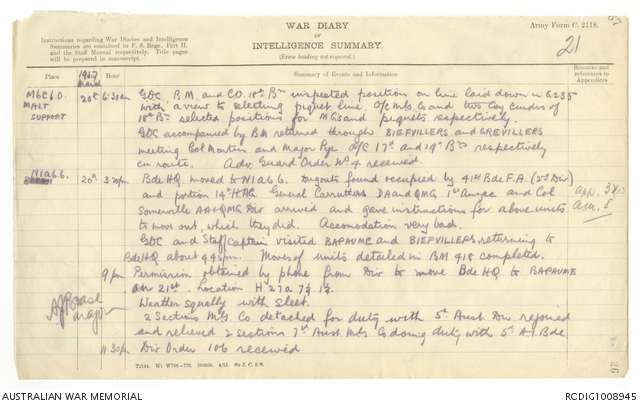 WAR DIARY
or
INTELLIGENCE SUMMARY.
(Erase heading not required.)
Army Form C. 2118.
21
Instructions regarding War Diaries and Intelligence
Summaries are contained in F. S. Regs., Part II.
and the Staff Manual respectively. Title pages
will be prepared in manuscript.
Place
1917
March
Hour
Summary of Events and Information
Remarks and
references to
Appendices
M6C6.0. 20th 6.30am GOC B.M. and CO. 18th Bn inspected position on line laid down in G235
MALT with a view to selecting piquet line. O/C M.G. Co and two Coy Cmdrs of
SUPPORT 18th Bn selected positions for MGs and piquets respectively.
GOC accompanied by BM returned through BIEFVILLERS and GREVILLERS
meeting Col Martin and Major Pye O/C 17th and 19th Bns respectively
en route. Adv. Guard Order No 4 received.
N1a6.6. 20th 3.30pm Bde HQ moved to N1a6.6. Dugouts found occupied by 41st Bde F.A. (2nd Div)
and portion 14th HAG General Carruthers DA and QMG 1st Anzac and Col app. 34
Somerville AA & QMG Div arrived and gave instructions for above units
to move out, which they did. Accomodation very bad.
GOC and Staff Captain visited BAPAUME and BIEFVILLERS returning to
Bde HQ about 9.45pm. Moves of units detailed in BM 418 completed.
9 pm Permission obtained by phone from Div to move Bde HQ to BAPAUME
on 21st. Location H27a
Weather squally with sleet.
2 Sections M.G. Co detached for duty with 5th Aust. Div. rejoined
and relieved 2 sections 7th Aust M.G. Co doing duty with 5th A.I. Bde.
11.30pm Div Order 106 received
Major
26
AUSTRALIAN WAR MEMORIAL
RCDIG1008945